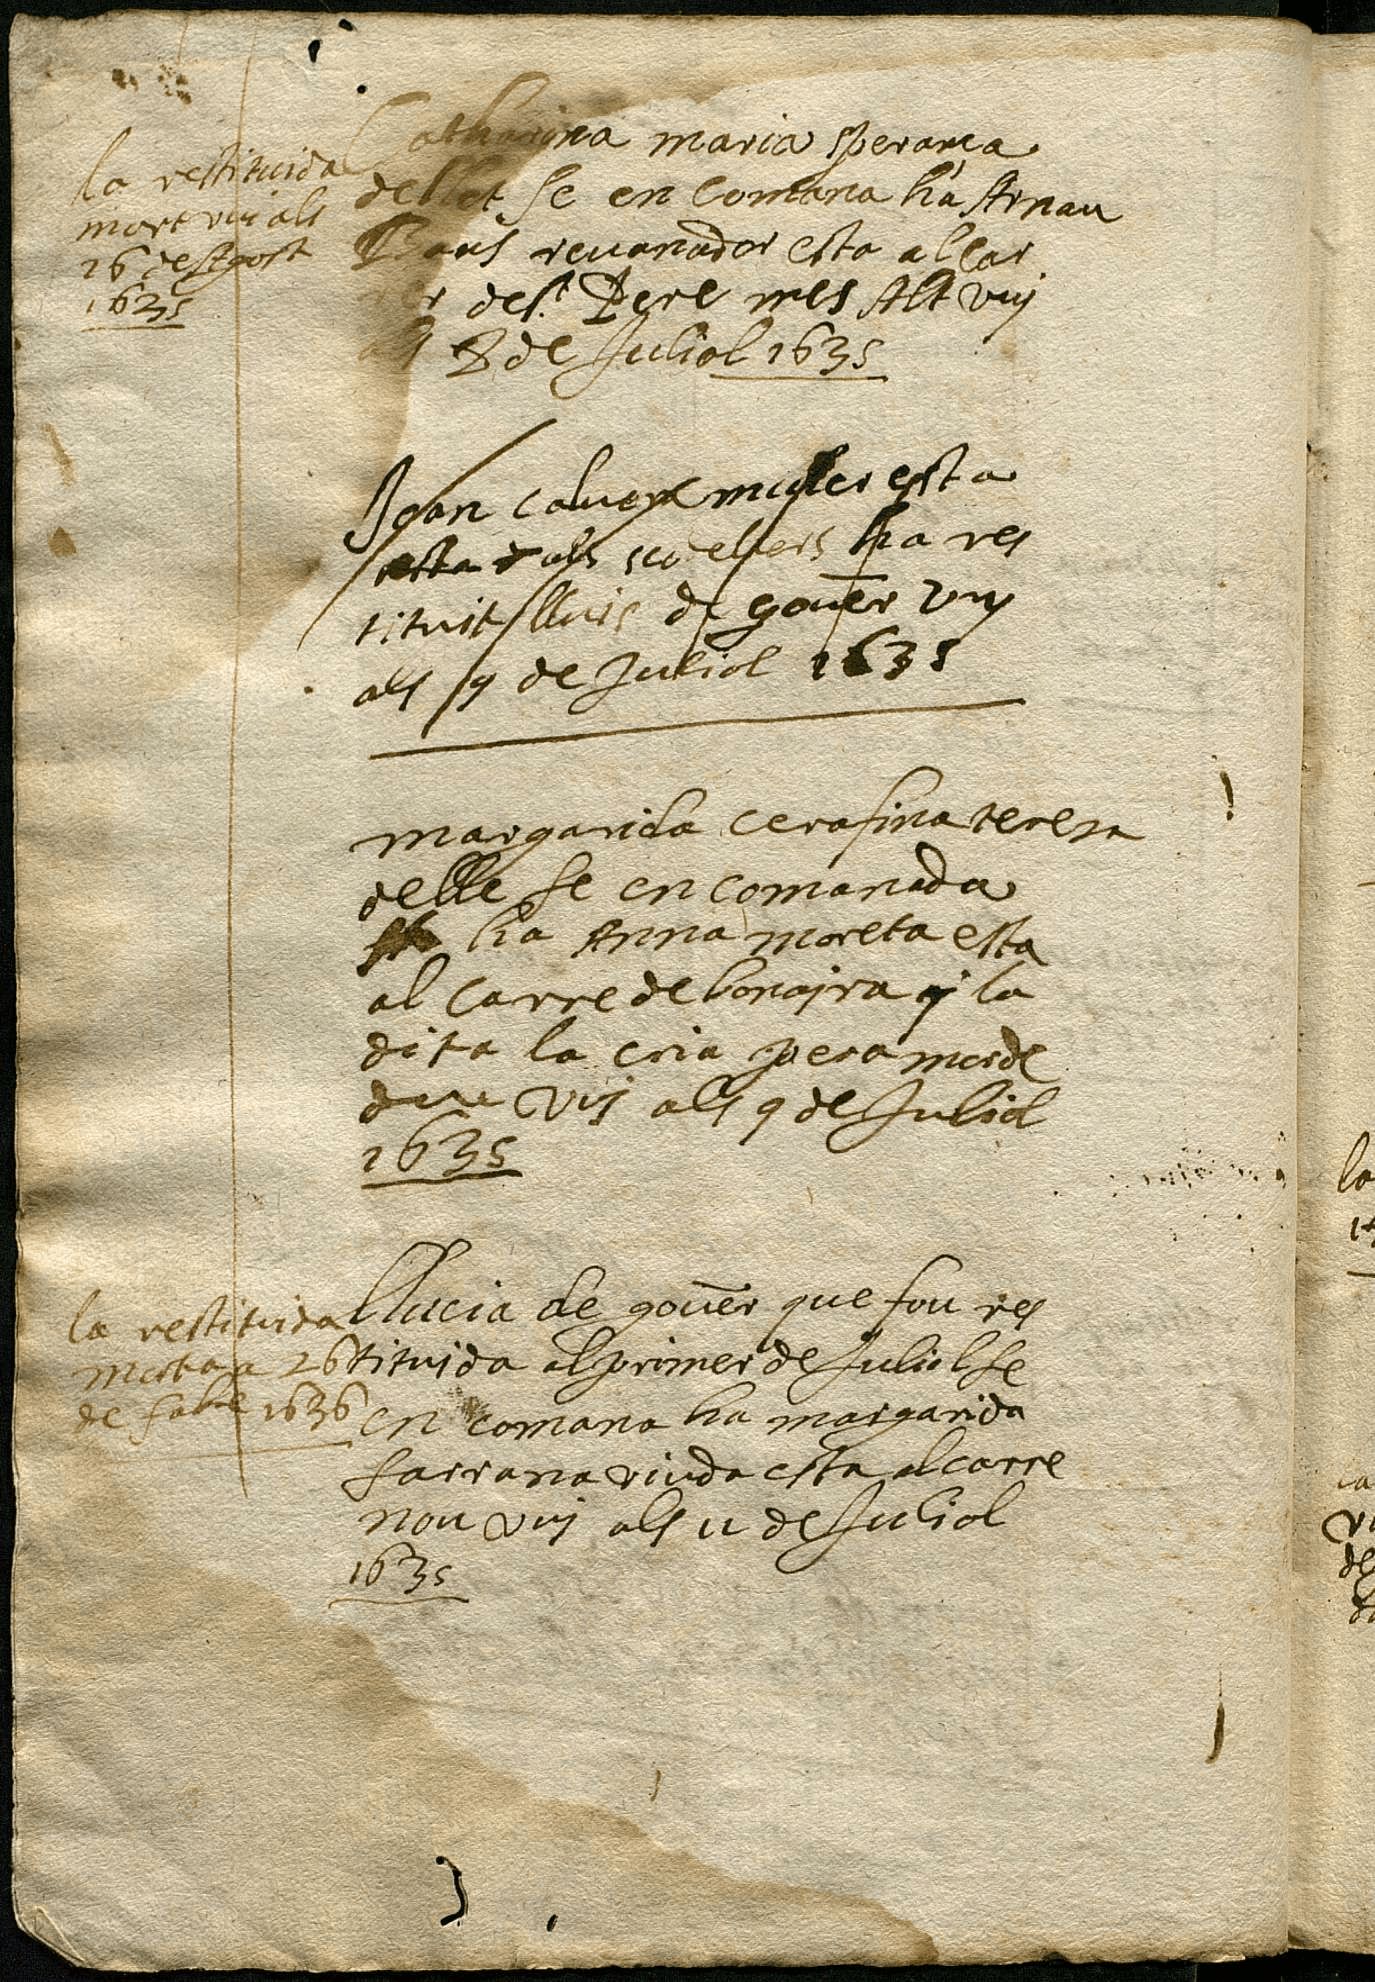 la restituida
mort vuj als
26 de Agost
1635
Catharina maria sperança
de llet se en comana ha Arnau
Baus revanador esta al Car
rer de St. Pere mes Alt vuj
als 8 de Juliol 1635
Joan calvex muller esta
esta als ha res
tituit lluis de gover vuy
als 9 de Juliol 1635
margarida cerafina teresa
de lle se en comanada
ha Anna moreta esta
al carre de bonajra y la
dita la cria per amor de
deu vuj als 9 de Juliol
1635
la restituida
morta a 26
de fabre 1636
Llucia de gover que fou res
tituida al primer de Juliol se
en comana ha margarida
farrana viuda esta al carre
nou vuj als 11 de Juliol
1635